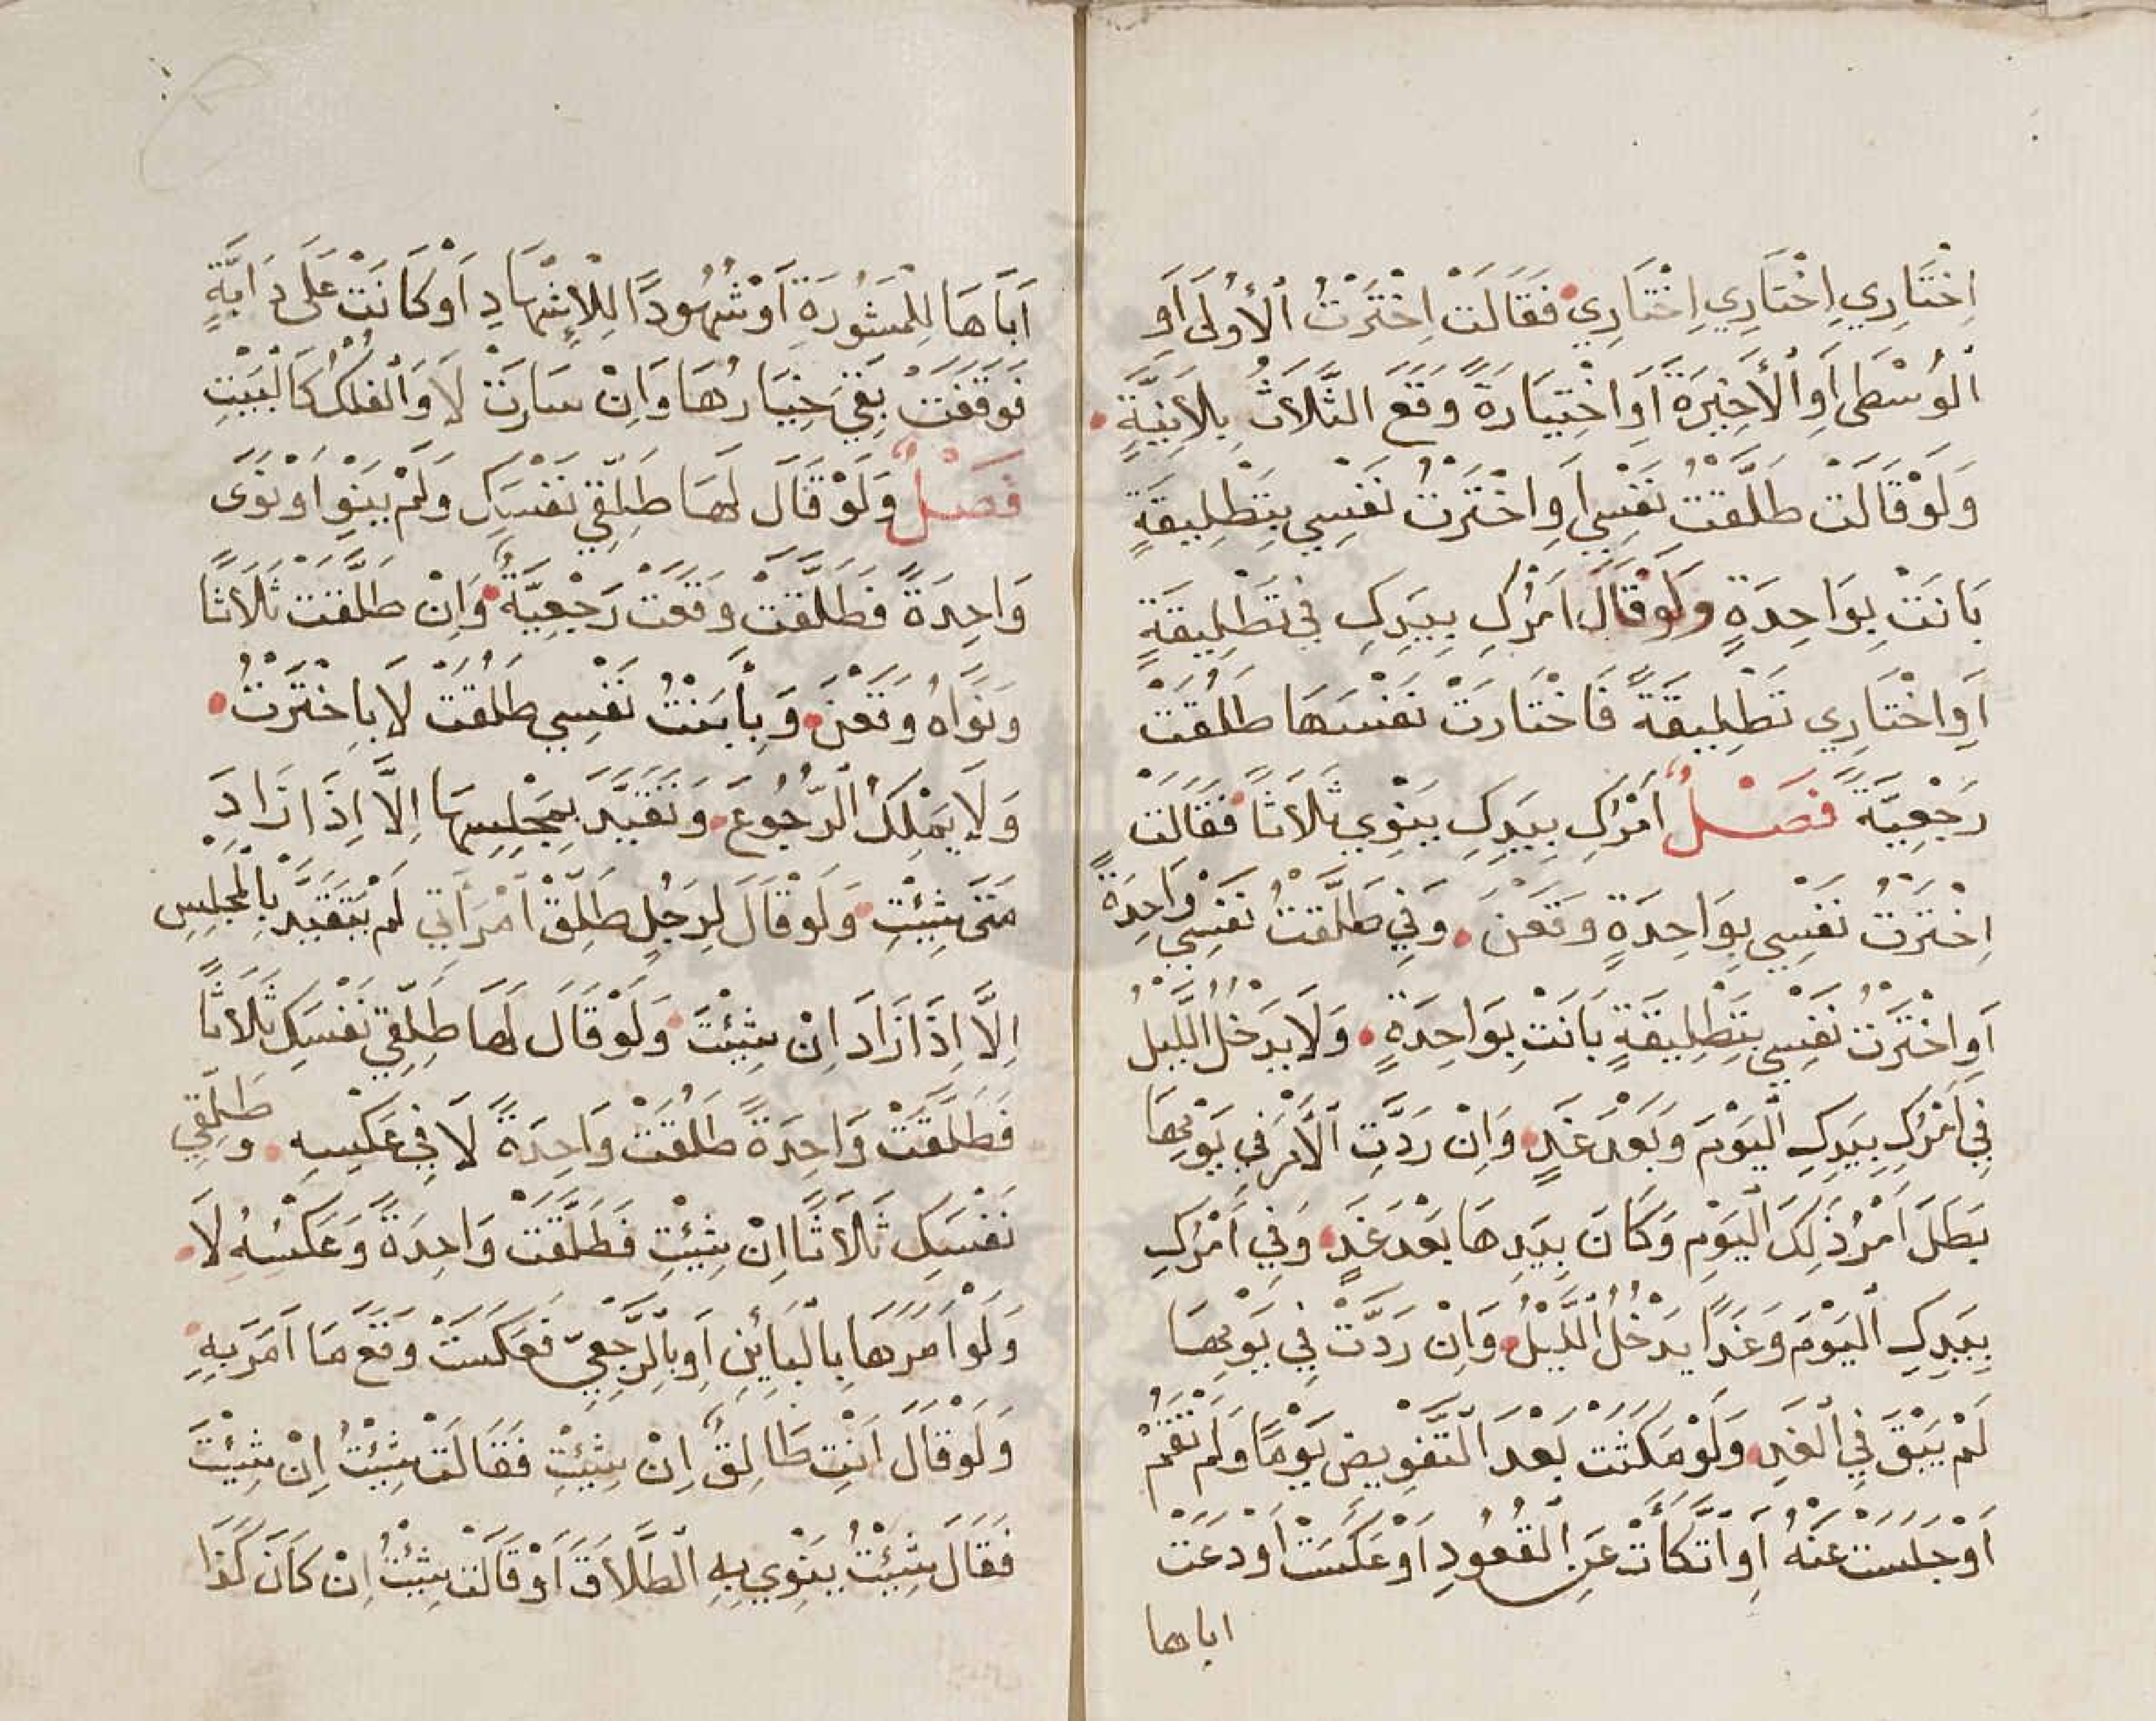 اِخْتَارِي اِخْتَارِي اِخْتَارِي فَقَالَتْ اِخْتَرْتُ الْأُولَى أَوِ
الْوُسْطَى أَوِ الْأَخِيرَةَ أَوِ اخْتِيَارَةً وَقَعَ الثَّلَاثُ بِلَا نِيَّةٍ
وَلَوْ قَالَتْ طَلَّقْتُ نَفْسِي أَوِ اخْتَرْتُ نَفْسِي بِتَطْلِيقَةٍ
بَانَتْ بِوَاحِدَةٍ وَلَوْ قَالَ أَمْرُكِ بِيَدِكِ فِي تَطْلِيقَةٍ
أَوِ اخْتَارِي تَطْلِيقَةً فَاخْتَارَتْ نَفْسَهَا طَلُقَتْ
رَجْعِيَّةً فَصْلٌ أَمْرُكِ بِيَدِكِ يَنْوِي ثَلَاثًا فَقَالَتْ
اِخْتَرْتُ نَفْسِي بِوَاحِدَةٍ وَقَعْنَ وَفِي طَلَّقْتُ نَفْسِي وَاحِدَةً
أَوِ اخْتَرْتُ نَفْسِي بِتَطْلِيقَةٍ بَانَتْ بِوَاحِدَةٍ وَلَا يَدْخُلُ اللَّيْلُ
فِي أَمْرُكِ بِيَدِكِ الْيَوْمَ وَبَعْدَ غَدٍ وَإِنْ رَدَّتِ الْأَمْرَ فِي يَوْمِهَا
بَطَلَ أَمْرُ ذَلِكَ الْيَوْمِ وَكَانَ بِيَدِهَا بَعْدَ غَدٍ وَفِي أَمْرُكِ
بِيَدِكِ الْيَوْمَ وَغَدًا يَدْخُلُ اللَّيْلُ وَإِنْ رَدَّتْ فِي يَوْمِهَا
لَمْ يَبْقَ فِي الْغَدِ وَلَوْ مَكَثَتْ بَعْدَ التَّفْوِيضِ يَوْمًا وَلَمْ تَقُمْ
أَوْ جَلَسَتْ عَنْهُ أَوِ اتَّكَأَتْ عَنِ الْقُعُودِ أَوْ عَكَسَتْ أَوْ دَعَتْ
اباها
أَبَاهَا لِلْمَشُورَةِ أَوْ شُهُودًا لِلْإِشْهَادِ أَوْ كَانَتْ عَلَى دَابَّةٍ
فَوَقَفَتْ بَقِيَ خِيَارُهَا وَإِنْ سَارَتْ لَا وَالْفُلْكُ كَالْبَيْتِ
فَصْلٌ وَلَوْ قَالَ لَهَا طَلِّقِي نَفْسَكِ وَلَمْ يَنْوِ أَوْ نَوَى
وَاحِدَةً فَطَلَّقَتْ وَقَعَتْ رَجْعِيَّةٌ وَإِنْ طَلَّقَتْ ثَلَاثًا
وَنَوَاهُ وَقَعْنَ وَبِأَبَنْتُ نَفْسِي طَلُقَتْ لَا بِاخْتَرْتُ
وَلَا يَمْلِكُ الرُّجُوعَ وَتَقَيَّدَ بِمَجْلِسِهَا إِلَّا إِذَا زَادَ
مَتَى شِئْتِ وَلَوْ قَالَ لِرَجُلٍ طَلِّقْ امْرَأَتِي لَمْ يَتَقَيَّدْ بِالْمَجْلِسِ
إِلَّا إِذَا زَادَ إِنْ شِئْتَ وَلَوْ قَالَ لَهَا طَلِّقِي نَفْسَكِ ثَلَاثًا
فَطَلَّقَتْ وَاحِدَةً طَلُقَتْ وَاحِدَةً لَا فِي عَكْسِهِ وَطَلِّقِي
نَفْسَكِ ثَلَاثًا إِنْ شِئْتِ فَطَلَّقَتْ وَاحِدَةً وَعَكْسُهُ لَا
وَلَوْ أَمَرَهَا بِالْبَائِنِ أَوِ بِالرَّجْعِيِّ فَعَكَسَتْ وَقَعَ مَا أَمَرَ بِهِ
وَلَوْ قَالَ أَنْتِ طَالِقٌ إِنْ شِئْتِ فَقَالَتْ شِئْتُ إِنْ شِئْتَ
فَقَالَ شِئْتُ يَنْوِي بِهِ الطَّلَاقَ أَوْ قَالَتْ شِئْتُ إِنْ كَانَ كَذَا